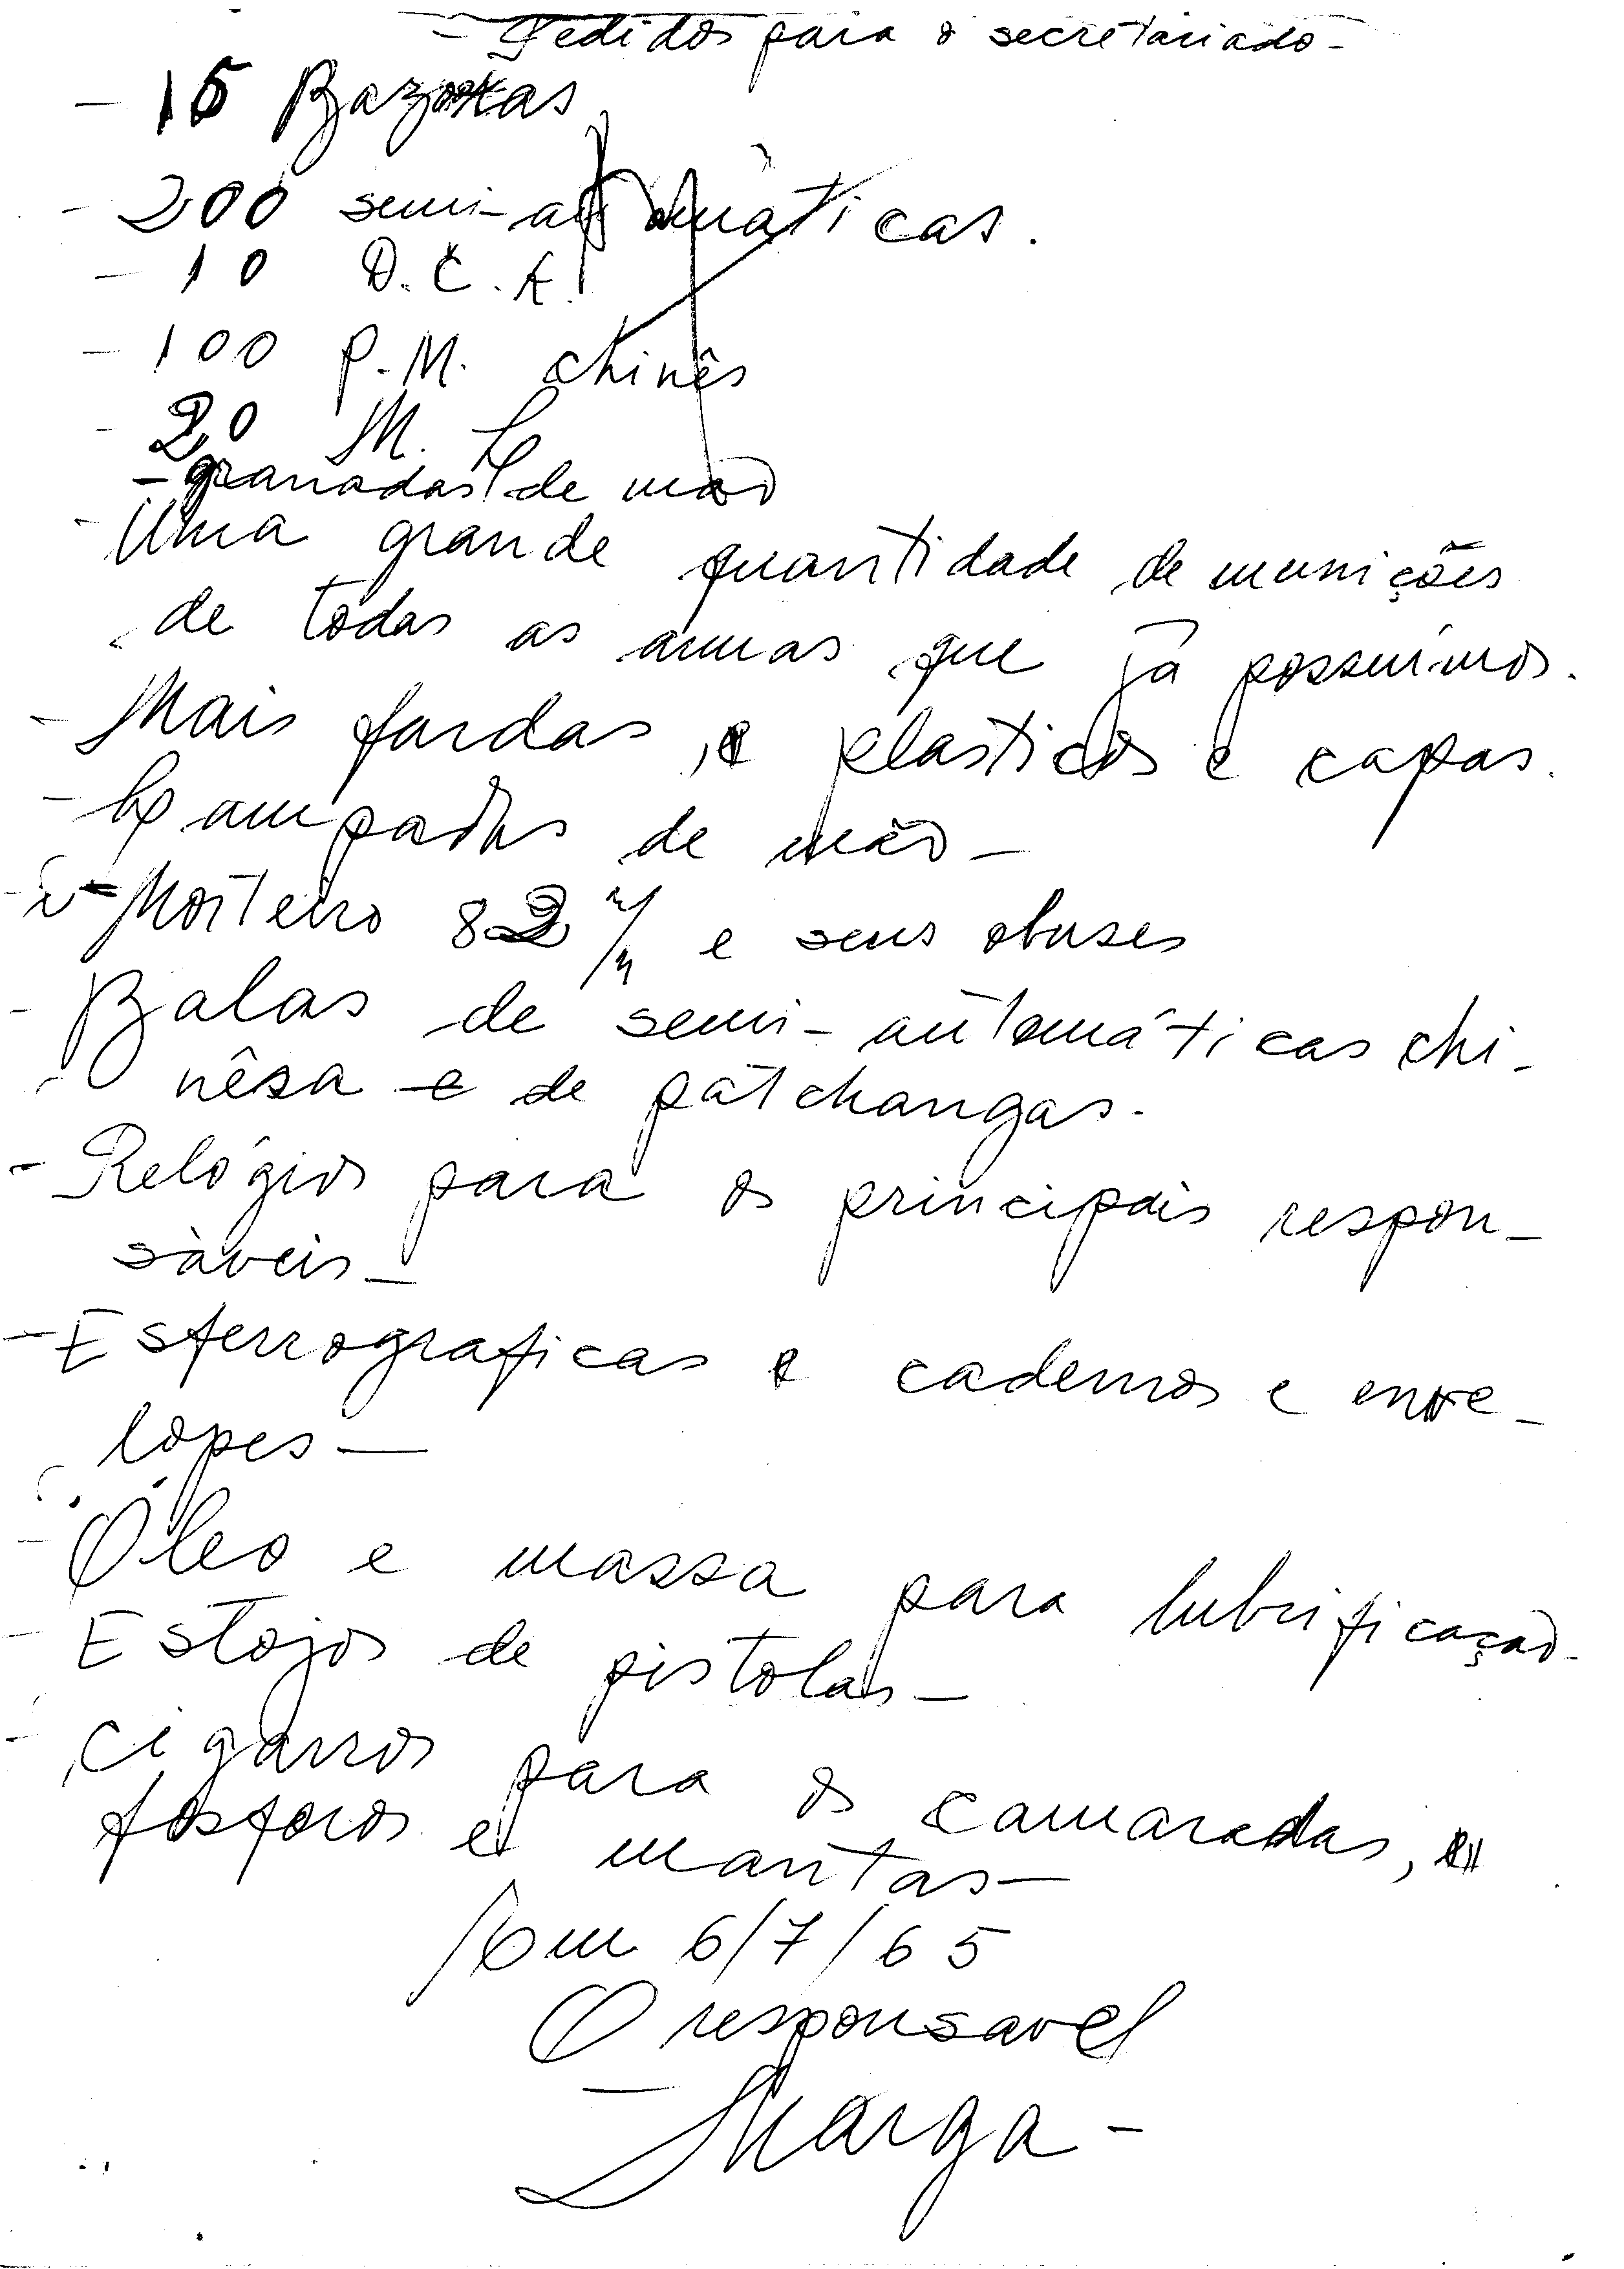 - Pedidos para o secretariado -
- 15 Bazookas
- 200 semi-automáticas.
- 10 D.C.A.
- 100 P.M. chinês
- 20 M. L.
- granadas de mão
- Uma grande quantidade de munições
de todas as armas que já possuímos.
- Mais fardas, e plasticos e capas.
- Lampadas de mão -
- Morteiro 82 m/m e seus obuses
- Balas de semi-automáticas chi-
nêsa e de patchangas.
- Relógios para os principais respon-
sàveis -
- Esferrograficas e cadernos e enve-
lopes -
- Óleo e massa para lubrificação -
- Estojos de pistolas -
- Cigarros para os camaradas,
fósforos e mantas -
Em 6/7/65
O responsavel
- Marga -